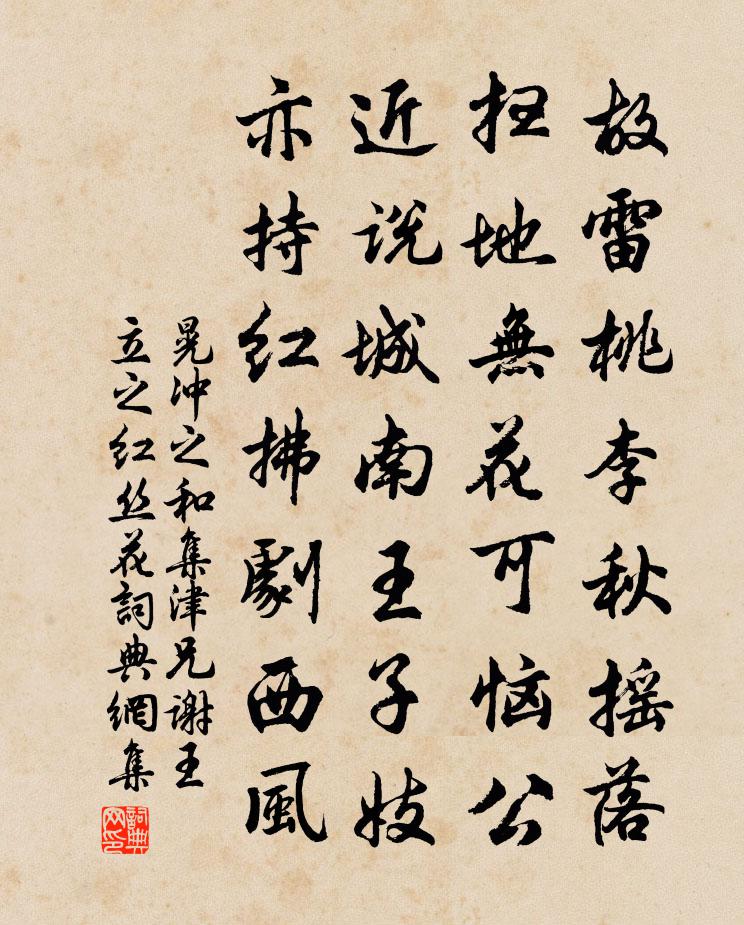 故雷桃李秋摇落
扫地無花可恼公
近说城南王子妓
亦持红拂劇西風
晃冲之和集津兄謝王
立之红丝花詞典網集
詞典
网印